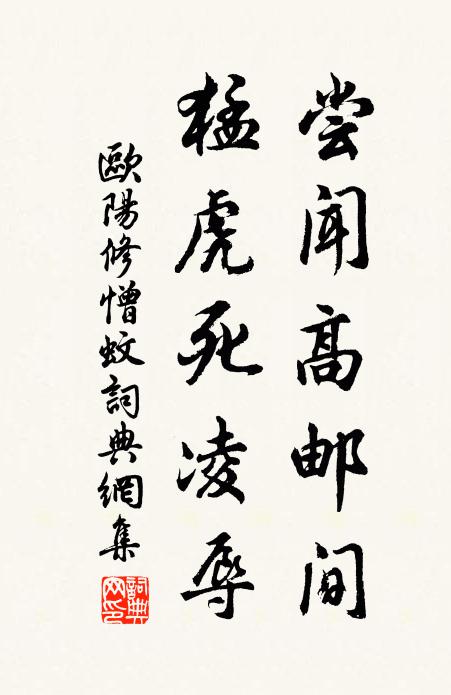 尝闻高邮间
猛虎死凌辱
歐陽修憎蚊詞典網集
詞典网印